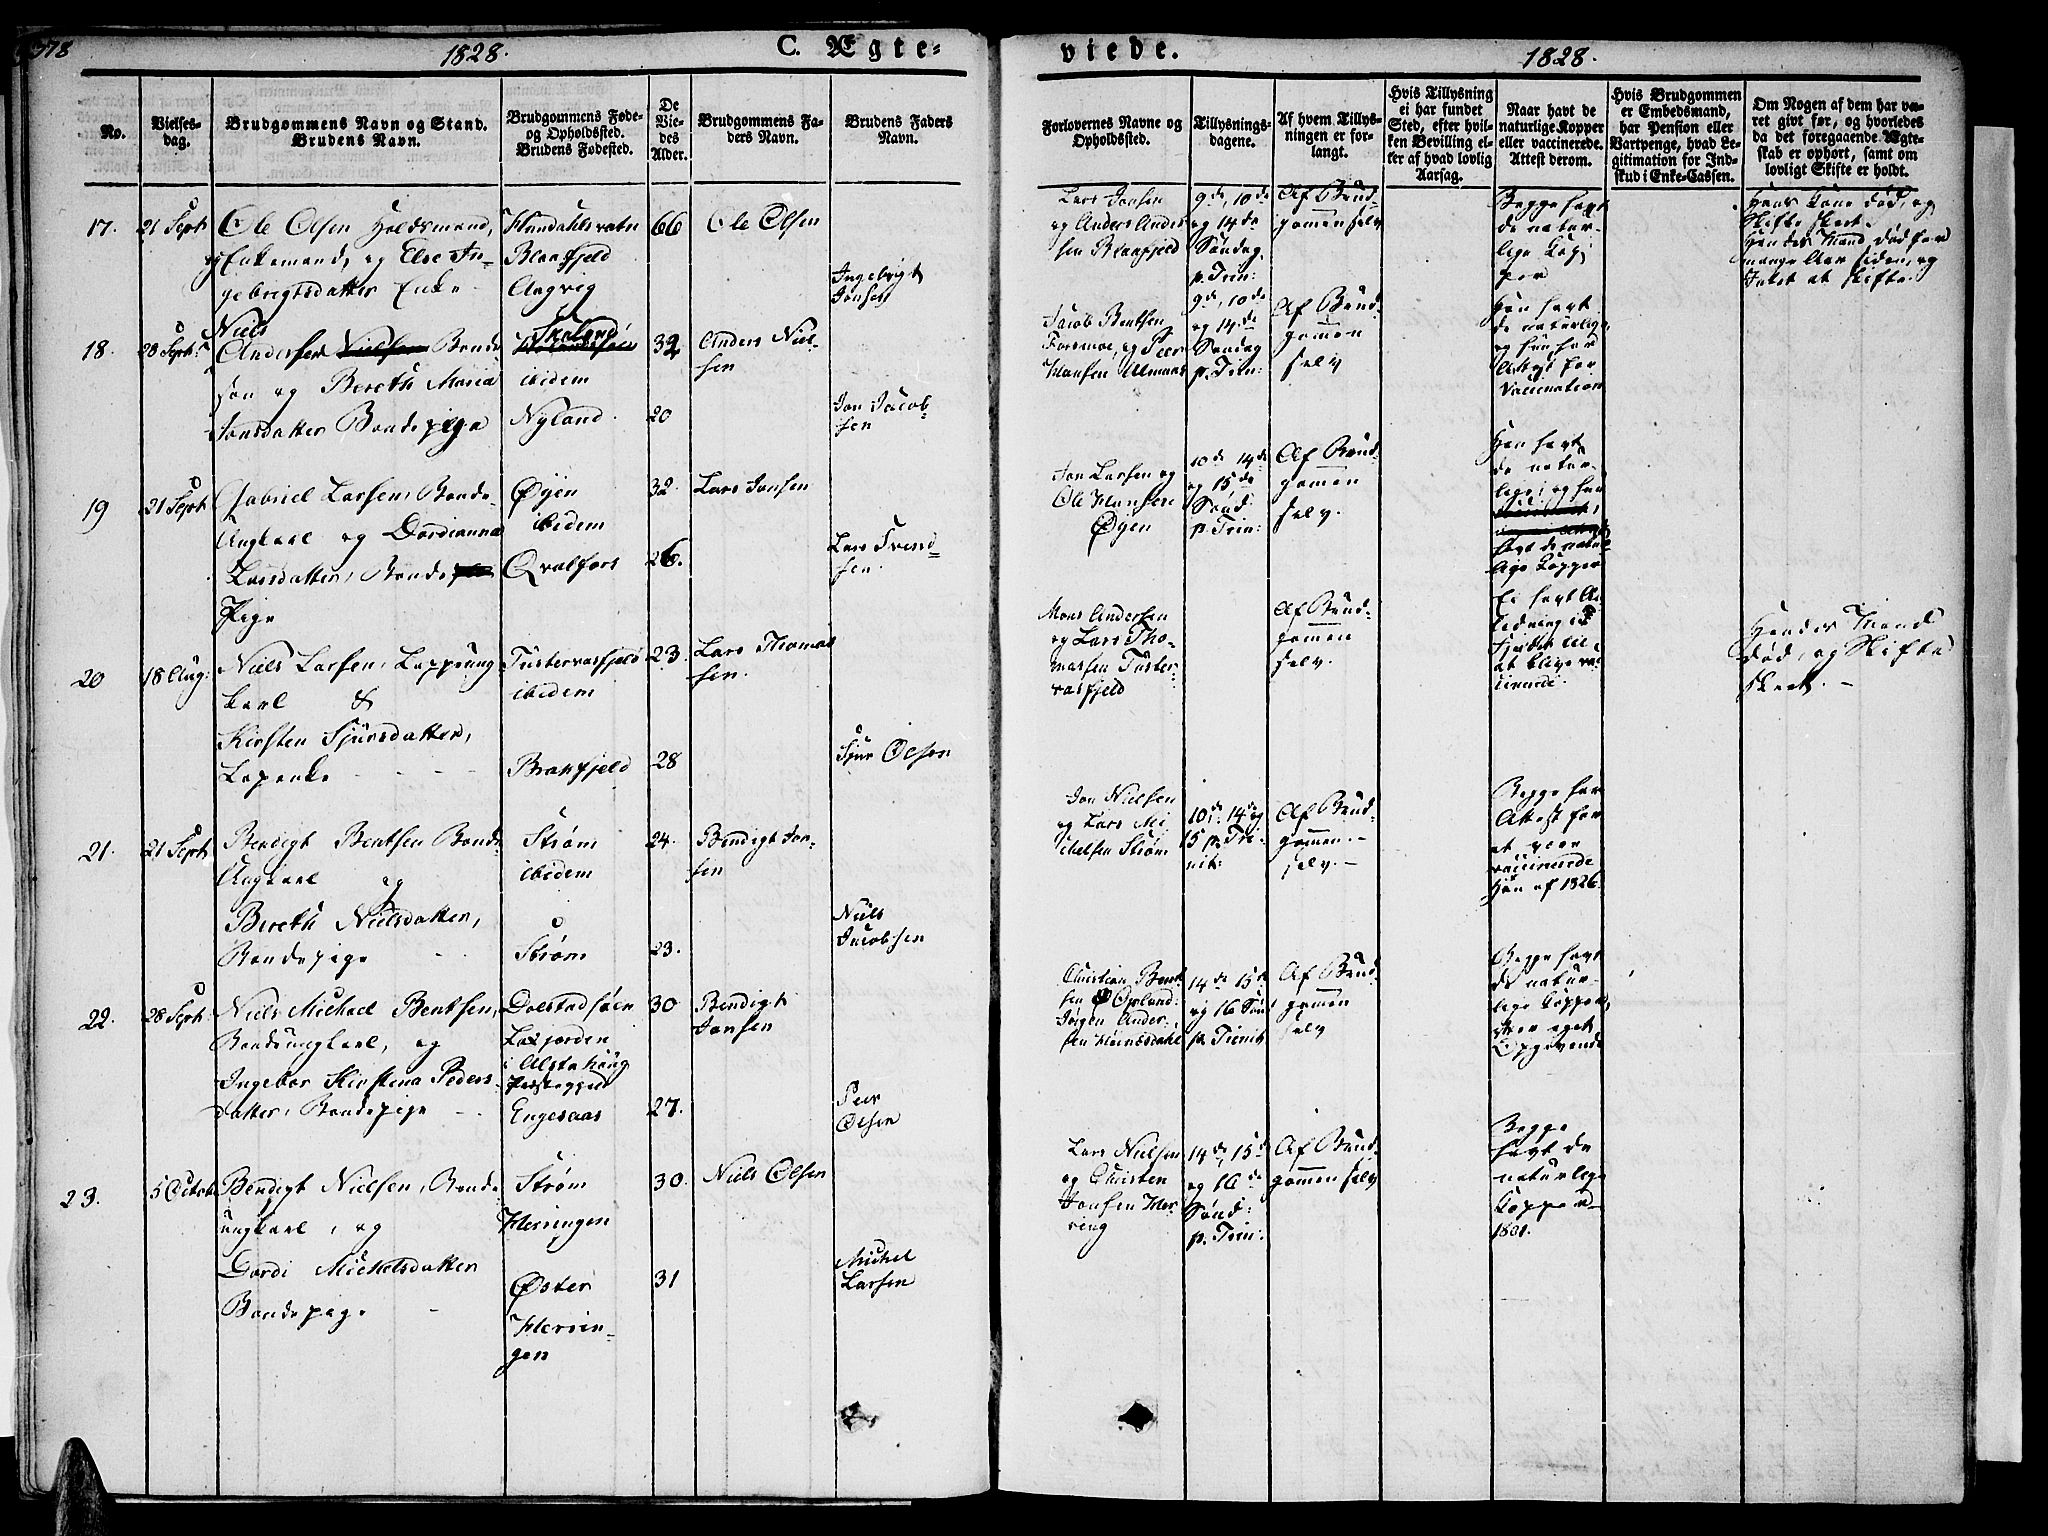 378
1828.
C. Ægte-
viede.
1828.
No.
Vielses-
dag.
Brudgommens Navn og Stand.
Brudens Navn.
Brudgommens Føde-
og Opholdssted.
Brudens Fødested.
De
Vie-
des
Alder.
Brudgommens Fa-
ders Navn.
Brudens Faders
Navn.
Forlovernes Navne og
Opholdssted.
Tillysnings-
dagene.
Af hvem Tillys-
ningen er for-
langt.
Hvis Tillysning
ei har fundet
Sted, efter hvil-
ken Bevilling el-
ler af hvad lovlig
Aarsag.
Naar havt de
naturlige Kopper
eller vaccinerede.
Attest derom.
Hvis Brudgommen
er Embedsmand,
har Pension eller
Vartpenge, hvad Le-
gitimation for Ind-
skud i Enke-Cassen.
Om Nogen af dem har væ-
ret givt før, og hvorledes
da det foregaaende Ægte-
skab er ophørt, samt om
lovligt Skifte er holdt.
17.
21 Sept
Ole Olsen Holdsmand,
Enkemand, og Else In-
gebrigtsdatter Enke
Blaafjeld
Angvig
66
Ole Olsen
Ingebrigt
Jonsen
Lars Jonsen
og Anders Ander
sen Blaafjeld
9de, 10de
og 14de
Søndag
p. Trin:
Af Brud-
gommen selv
Begge havt
de natur-
lige Kop
per
Hans Kone død, og
Skifte skeet.
Hendes Mand død for
mange Aar siden, og
Intet at skifte.
18.
28 Sept:
Niels
Andersen Bonde
søn og Bereth Maria
Jonsdatter Bondepige
ibidem
Nyland
32
20
Anders Niel-
sen
Jon Jacob-
sen
Jacob Bentsen
Forsmoe, og Peer
Hansen Ulmnæs
9de, 10de
og 14de
Søndag
p. Trin:
Af Brud-
gommen
selv
Han havt
de naturlige,
og hun har
Attest for
Vaccination
19
21 Sept
Gabriel Larsen, Bonde-
Ungkarl og Dordianna
Larsdatter, Bonde
Pige
Øyen
ibidem
Qvalfors
32.
26.
Lars Jonsen
Lars Svend-
sen.
Jon Larsen og
Ole Hansen
Øyen
10de 14de
og 15de
Sønd:
p. Trin:
Af Brud-
gommen
selv.
Han havt
de natur-
lige, og hun
havt de natur-
lige Kopper
20
18 Aug:
Niels Larsen, Lappeung
karl &
Kirsten Sjursdatter,
Lapenke
Tustervasfjeld
ibidem
Brakfjeld
23.
28
Lars Thomas
sen.
Sjur Olsen
Mons Andersen
og Lars Tho-
massen Tuster-
vasfjeld
Af Brud-
gommen
selv.
Ei havt An-
ledning i
Fjeldet til
at blive vac-
cinerede.
Hendes Mand
død, og Skifte
skeet.
21.
21 Sept
Bendigt Bentsen Bonde
Ungkarl og
Bereth Nielsdatter,
Bondepige
Strøm
ibidem
Strøm
24.
23.
Bendigt Jon-
sen
Niels
Jacobsen
Jon Nielsen
og Lars Mi-
chelsen Strøm
10de 14de og
15 p. Tri-
nit:
Af Brud-
gommen
selv.
Begge har
Attest for
at være
vaccinerede
hun af 1826.
22.
28 Sept:
Niels Michael Bentsen,
Bondeungkarl, og
Ingebor Kirstina Peders-
datter, Bondepige
Dolstadsøen
i Alstahoug
Præstegjeld
Engesaas
30
27.
Bendigt
Jonsen
Peer
Olsen
Christian Bent
sen
Jørgen Ander-
sen
14de 15de
og 16 Søn:
p. Trinit
Af Brud-
gommen
selv
Begge havt
de natur-
lige Kopper,
eget
Opgivende
23.
5 Octob
Bendigt Nielsen, Bonde
ungkarl, og
Dordi Michelsdatter
Bondepige
Strøm
Herringen
Øster
Herrin-
gen
30.
31
Niels Olsen
Michel
Larsen
Lars Nielsen
og Christen
Jonsen Her-
ring
14de, 15de
og 16de
Sønd:
p. Trin:
Af Brud-
gommen selv
Begge
havt de
naturlige
Kopper
1801.